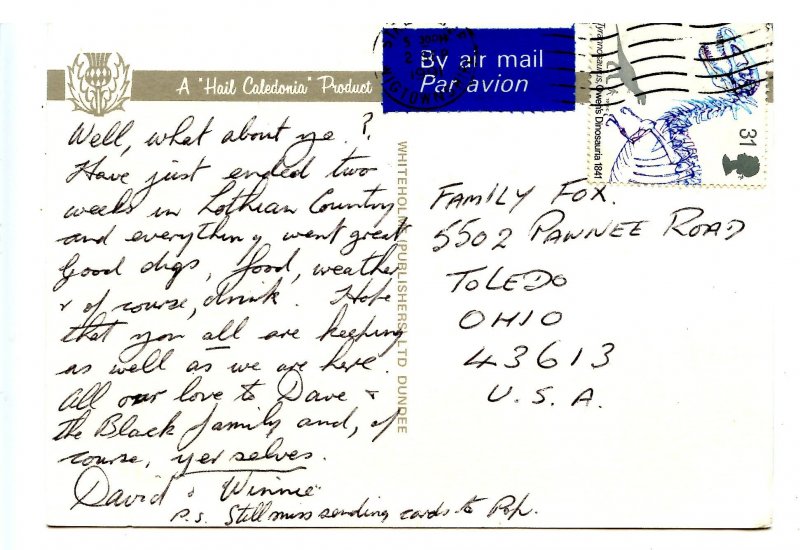 A "Hail Caledonia" Product
By air mail
Par avion
Tyrannosaurus. Owen's Dinosauria 1841
31
Well, what about ye?
Have just ended two
weeks in Lothian Country
and everything went great
Good digs, food, weather
& of course, drink. Hope
that you all are keeping
as well as we are here.
All our love to Dave &
the Black family and, of
course, yerselves.
David & Winnie
P.S. Still miss sending cards to Pop.
WHITEHOLME (PUBLISHERS) LTD DUNDEE
FAMILY FOX.
5502 PAWNEE ROAD
TOLEDO
OHIO
43613
U.S.A.